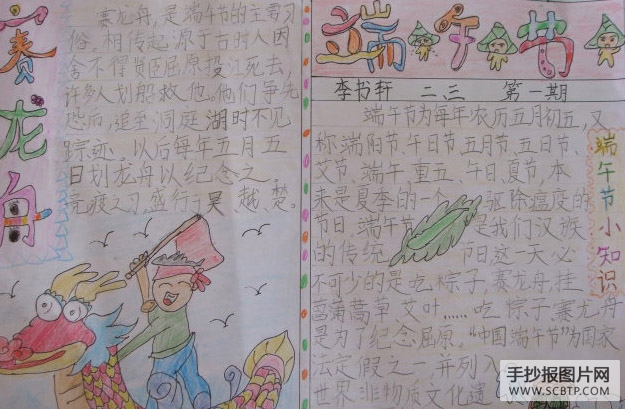 赛龙舟
赛龙舟，是端午节的主要习
俗。相传起源于古时人因
舍不得贤臣屈原投江死去，
许多人划船救他。他们争先
恐后，追至洞庭湖时不见
踪迹，以后每年五月五
日划龙舟以纪念之。
竞渡之习，盛行于吴、越、楚。
端午节
李书轩 二三 第一期
端午节为每年农历五月初五，又
称端阳节、午日节、五月节、五日节、
艾节、端午、重五、午日、夏节，本
来是夏季的一个 驱除瘟疫的
节日，端午节 是我们汉族
的传统 节日，这一天必
不可少的是吃粽子，赛龙舟，挂
菖蒲蒿草艾叶……吃粽子，赛龙舟
是为了纪念屈原。“中国端午节”为国家
法定假之一并列入
世界非物质文化遗
端午节小知识
手抄报图片网
WWW.SCBTP.COM